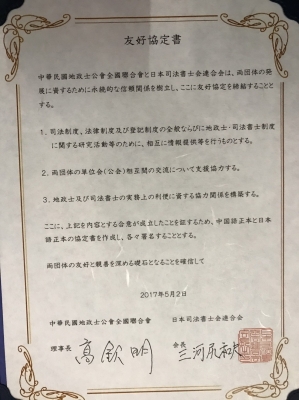 友好協定書
中華民國地政士公會全國聯合會と日本司法書士会連合会は、両団体の発
展に資するために永続的な信頼関係を樹立し、ここに友好協定を締結することと
する。
1．司法制度、法律制度及び登記制度の全般ならびに地政士・司法書士制度
に関する研究活動等のために、相互に情報提供等を行うものとする。
2．両団体の単位会(公会)相互間の交流について支援協力する。
3．地政士及び司法書士の実務上の利便に資する協力関係を構築する。
ここに、上記を内容とする合意が成立したことを証するため、中国語正本と日本
語正本の協定書を作成し、各々署名することとする。
両団体の友好と親善を深める礎石となることを確信して
2017年5月2日
中華民國地政士公會全國聯合會 日本司法書士会連合会
理事長 高欽明 会長 三河尻和夫